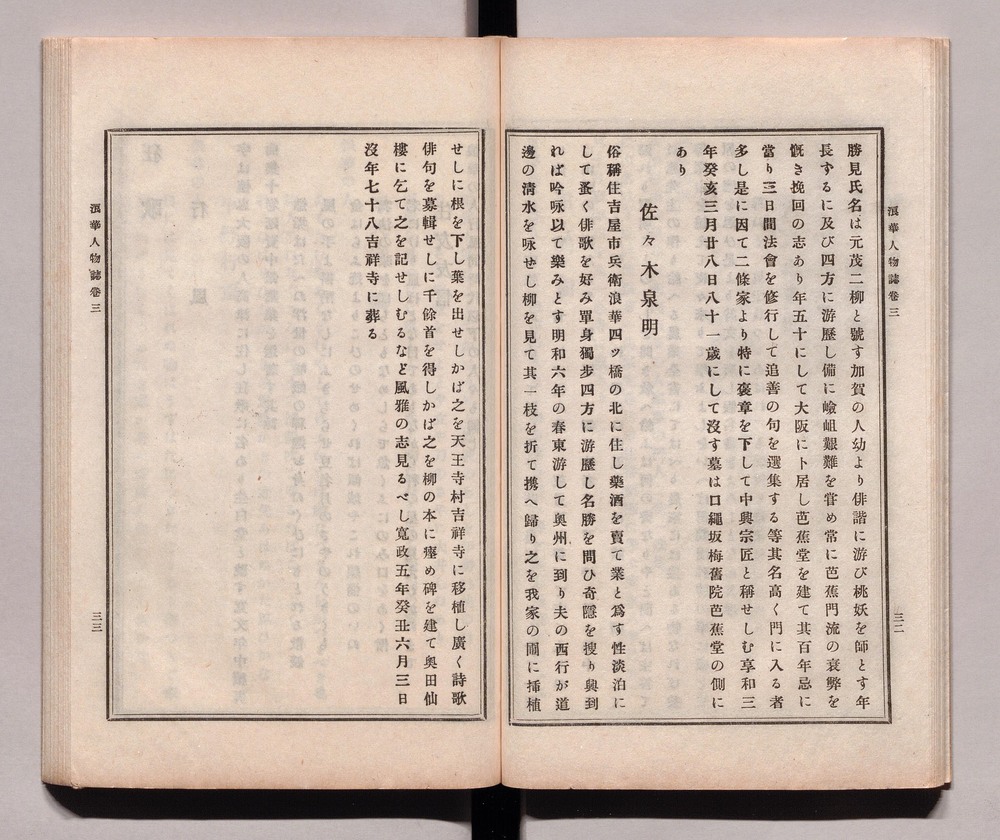 浪華人物誌卷三
三二
勝見氏名は元茂二柳と號す加賀の人幼より俳諧に游び桃妖を師とす年
長ずるに及び四方に游歷し備に嶮岨艱難を甞め常に芭蕉門流の衰弊を
慨き挽回の志あり年五十にして大阪に卜居し芭蕉堂を建て其百年忌に
當り三日間法會を修行して追善の句を選集する等其名高く門に入る者
多し是に因て二條家より特に褒章を下して中興宗匠と稱せしむ享和三
年癸亥三月廿八日八十一歲にして沒す墓は口繩坂梅舊院芭蕉堂の側に
あり
佐々木泉明
俗稱住吉屋市兵衛浪華四ッ橋の北に住し藥酒を賣て業と爲す性淡泊に
して蚤く俳歌を好み單身獨步四方に游歷し名勝を問ひ奇隱を搜り興到
れば吟咏以て樂みとす明和六年の春東游して奥州に到り夫の西行が道
邊の淸水を咏せし柳を見て其一枝を折て携へ歸り之を我家の圃に揷植
せしに根を下し葉を出せしかば之を天王寺村吉祥寺に移植し廣く詩歌
俳句を募輯せしに千餘首を得しかば之を柳の本に瘞め碑を建て奥田仙
樓に乞て之を記せしむるなど風雅の志見るべし寬政五年癸丑六月三日
沒年七十八吉祥寺に葬る
浪華人物誌卷三
三三